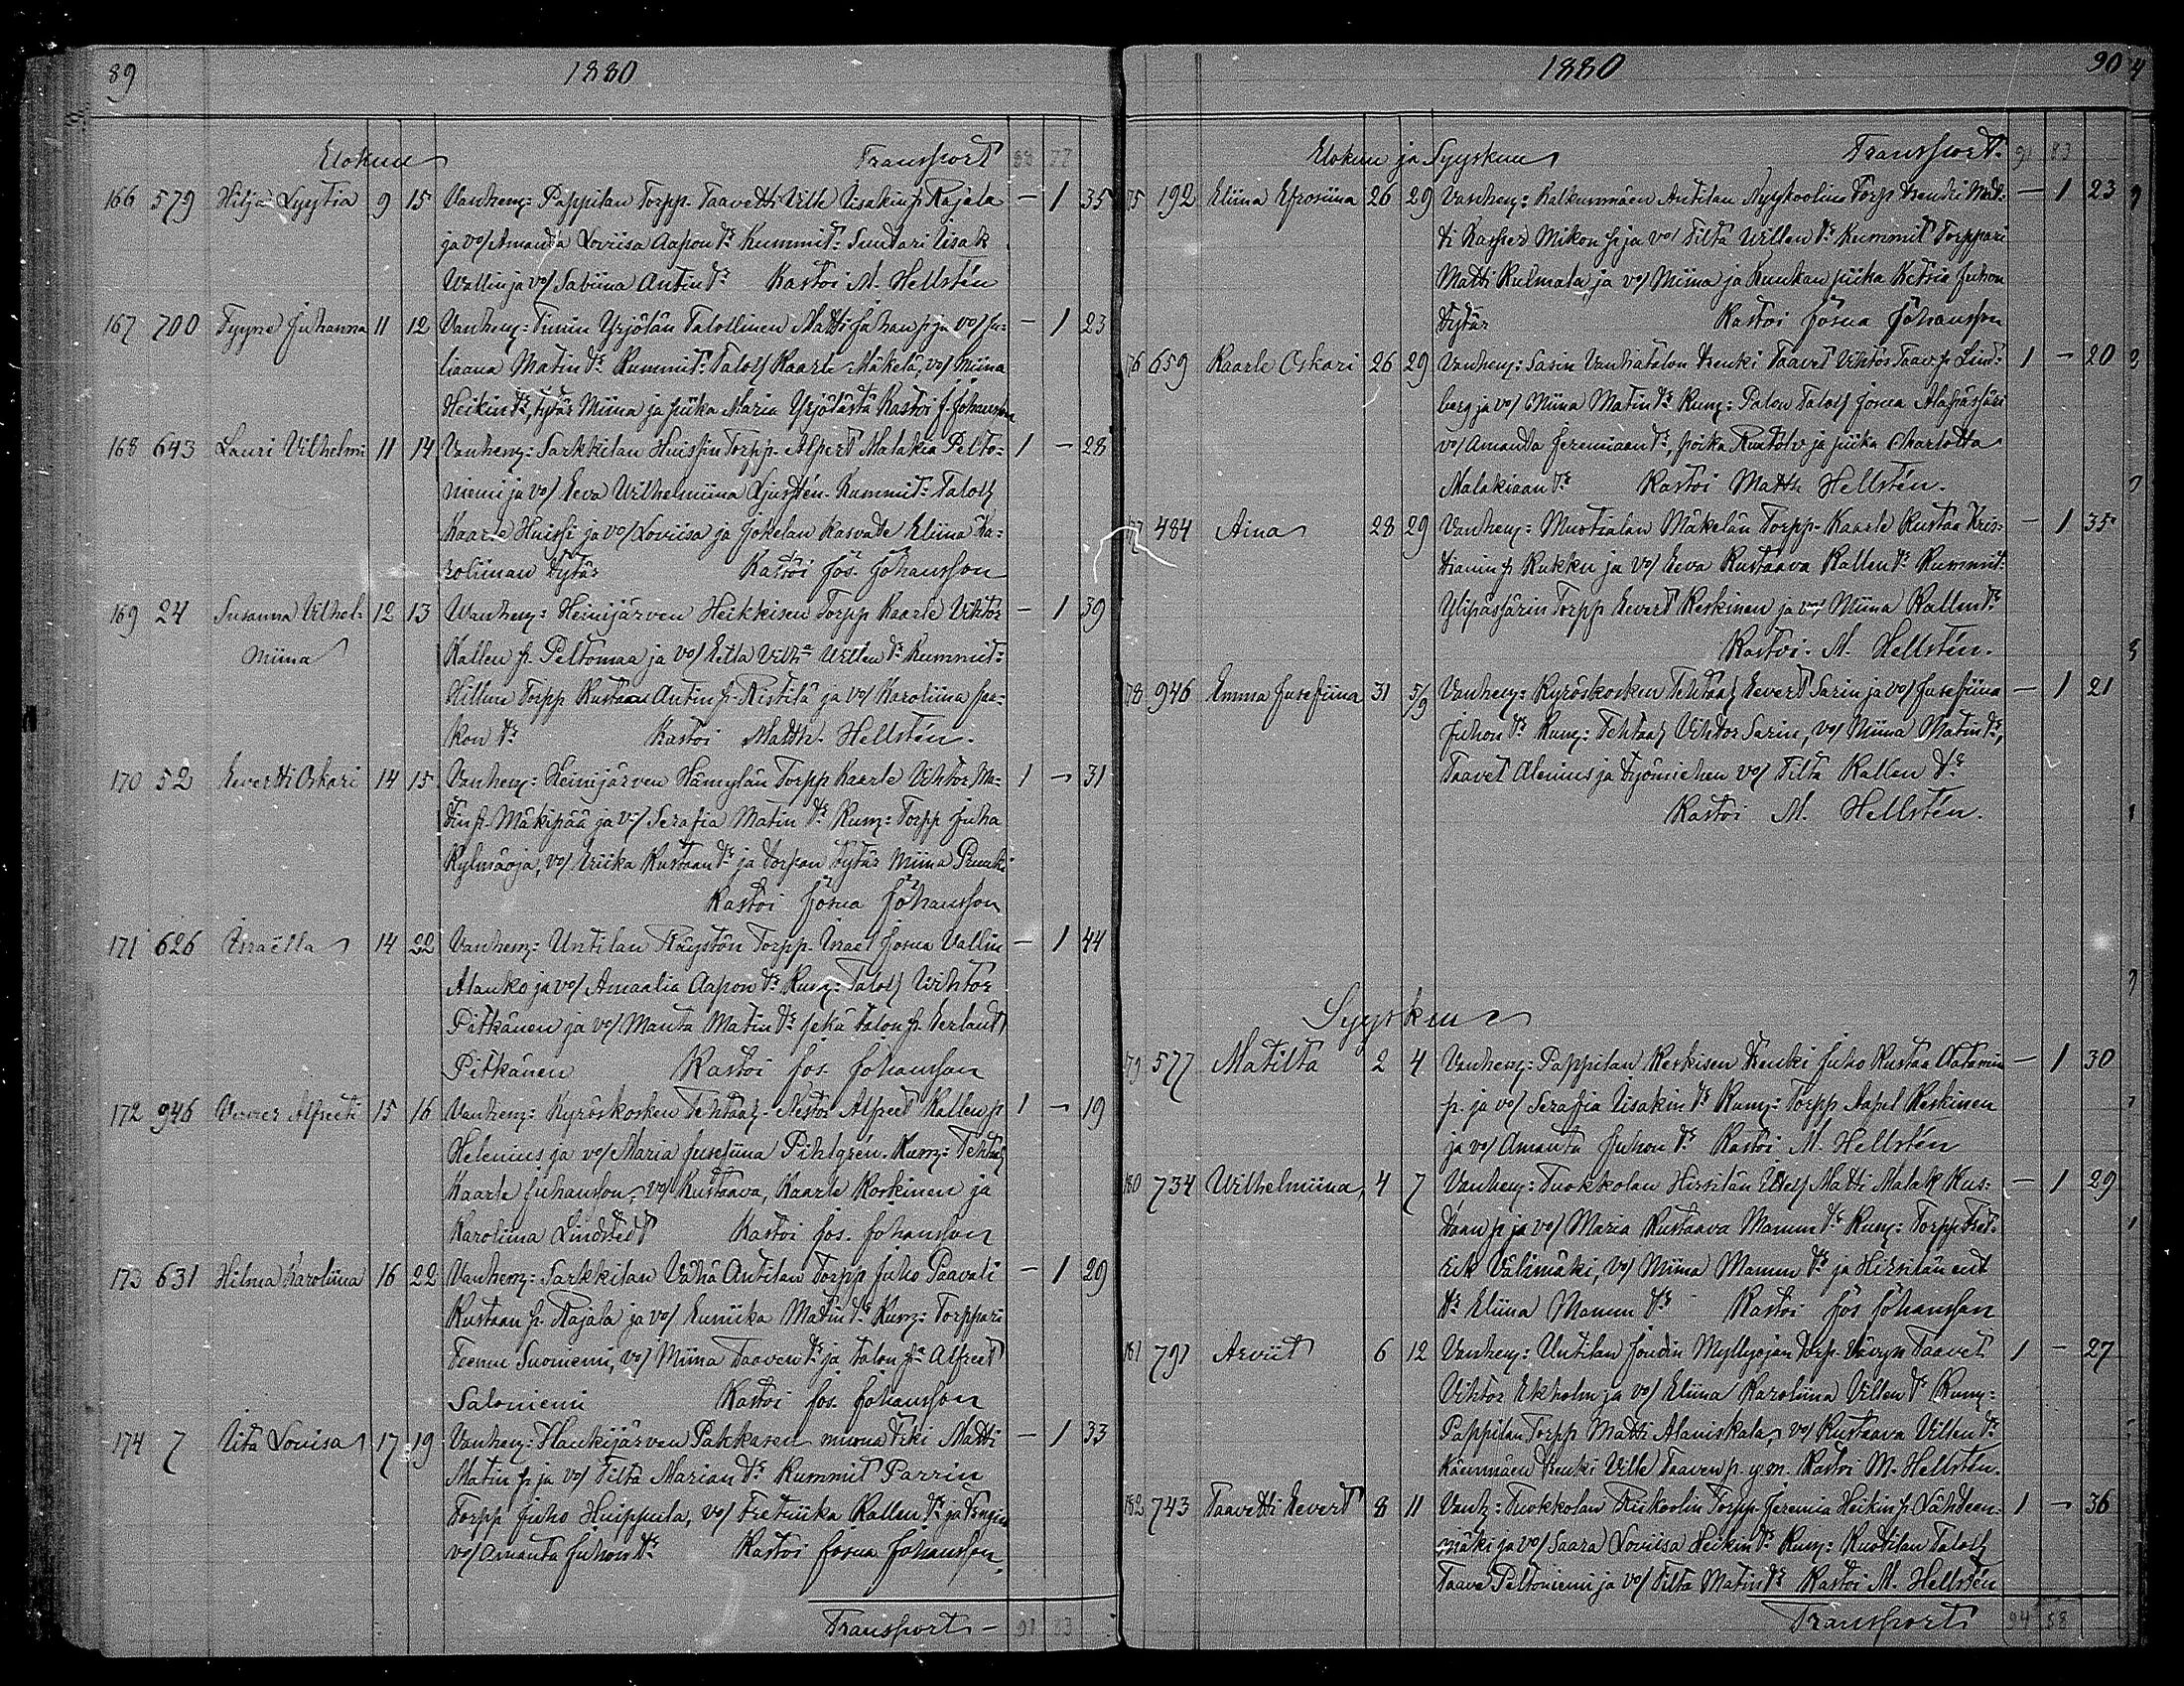 89 1880
Elokuu Transport 88 77
166 579 Hilja Lyytia 9 15 Vanhem: Pappilan Torpp. Taavetti Ville Iisakin p. Rajala — 1 35
ja vo/ Amanda Loviisa Aapon tr Kummit: Suutari Iisak
Wallin ja vo/ Sabiina Antin tr Kastoi M. Hellstén
167 700 Tyyne Juhanna 11 12 Vanhem: Timin Yrjölän Talollinen Matti Juhan p. ja vo/ Ju- — 1 23
liaana Matin tr Kummit: Talol/ Kaarle Mäkelä, vo/ Miina
Heikin tr, tytär Miina ja piika Maria Yrjölästä Kastoi J. Johansson
168 643 Lauri Vilhelmi 11 14 Vanhem: Sarkkilan Huissin Torpp. Alpert Malakia Pelto= 1 — 28
niemi ja vo/ Eeva Wilhelmiina Ljustén. Kummit: Talol/
Kaarle Huissi ja vo/ Loviisa ja Jokelan kasvatte Eliina Ka=
roliinan tytär Kastoi Jos. Johansson
169 24 Susanna Vilhel- 12 13 Wanhem: Heinijärven Heikkisen Torpp Kaarle Vihtor — 1 39
miina Kallen p. Peltomaa ja vo/ Etla Vilh:a Willen tr Kummit:
Hillun Torpp Kustaan Antin p. Ristilä ja vo/ Karoliina Jaa=
kon tr Kastoi Matth. Hellstén.
170 52 Eevertti Oskari 14 15 Vanhem: Heinijärven Hannulan Torpp Kaarle Vihtor Ma- 1 — 31
tin p. Mäkipää ja vo/ Serafia Matin tr Kum: Torpp Juha
Kylmäoja, vo/ Eriika Kustaan tr ja torpan tytär Miina Prunki
Kastoi Josua Johansson
171 626 Israëlla 14 22 Vanhem: Untilan Röystön Torpp. Israel Josua Vallin — 1 44
Alanko ja vo/ Amaalia Aapon tr Kum: Talol/ Wihtor
Pitkänen ja vo/ Manta Matin tr sekä talon p. Eerland
Pitkänen Kastoi Jos. Johansson
172 946 Verner Alfreti 15 16 Vanhem: Kyröskosken Tehtaal. Nestor Alfred Kallen p. 1 — 19
Helenius ja vo/ Maria Jusefiina Pihlgrén. Kum: Tehtaal
Kaarle Juhansson, vo/ Kustaava, Kaarle Koskinen ja
Karoliina Lindstedt Kastoi Jos. Johansson
173 631 Hilma Karoliina 16 22 Vanhem: Sarkkilan Vähä Antilan Torpp Juho Paavali — 1 29
Kustaan p. Rajala ja vo/ Euniika Matin tr Kum: Torppari
Teemu Suoniemi, vo/ Miina Taaven tr ja talon pa Alfred
Saloniemi Kastoi Jos. Johansson
174 7 Iita Lovisa 17 19 Vanhem: Haukijärven Pakkasen muona Trki Matti — 1 33
Matin p. ja vo/ Tilta Marian tr Kummit Parrin
Torpp Juho Huippula, vo/ Fretriika Kallen tr ja Rengin
vo/ Amanta Juhon tr Kastoi Josua Johansson
Transport — 91 83
1880 90
Elokuu ja Syyskuu Transport. 91 83
175 192 Eliina Efrosiina 26 29 Vanhem: Kalkunmäen Antilan Nyykoolina Torp Trenki Mat- — 1 23
ti Kasper Mikon p. ja vo/ Tilta Willen tr Kummit Torppari
Matti Kulmala ja vo/ Miina ja Kunkan piika Ketsia Juhon
tytär Kastoi Josua Johansson
176 659 Kaarle Oskari 26 29 Vanhem: Sasin Vanhatalon Trenki Taavet Vihtor Taav. p. Lind- 1 — 20
berg ja vo/ Miina Matin tr Kum: Palon Talol/ Josua Alapässäri
vo/ Amanda Jeremiaan tr, poika Rudolv ja piika Charlotta
Malakiaan tr Kastoi Matth Hellstén.
177 484 Aina 28 29 Vanhem: Muotialan Mäkelän Torpp. Kaarle Kustaa Kris- — 1 35
tianin p. Kukku ja vo/ Eeva Kustaava Kallen tr Kummit:
Ylipässärin Torpp Eevert Keskinen ja vmo/ Miina Kallen tr
Kastoi. M. Hellstén.
178 946 Emma Jusefiina 31 5/9 Vanhem: Kyröskosken Tehtaal Eevert Sarin ja vo/ Jusefiina — 1 21
Juhon tr Kum: Tehtaal Vihtor Sarin, vo/ Miina Matin tr,
Taavet Alenius ja työmiehen vo/ Tilta Kallen tr
Kastoi M. Hellstén.
Syyskuu
179 577 Matilta 2 4 Vanhem: Pappilan Keskisen Trenki Juho Kustaa Aatamin — 1 30
p. ja vo/ Serafia Iisakin tr Kum: Torpp Aapel Keskinen
ja vo/ Amanta Juhon tr Kastoi M. Hellstén
180 734 Wilhelmiina 4 7 Vanhem: Tuokkolan Hirsilän Itsel/ Matti Malak Kus- — 1 29
taan p. ja vo/ Maria Kustaava Manun tr Kum: Torpp Fret-
rik Välimäki, vo/ Miina Manun tr ja Hirsilän ent
tr Eliina Manun tr Kastoi Jos Johansson
181 791 Arviit 6 12 Vanhem: Untilan Joudin Myllyojan torp. Vävyn Taavet 1 — 27
Vihtor Ekholm ja vo/ Eliina Karoliina Villen tr Kum:
Pappilan Torpp Matti Alaniskala, vo/ Kustaava Villen tr
Käenmäen Trenki Ville Taaven p. y.m. Kastoi M. Hellstén.
182 743 Taavetti Eevert 8 11 Vanh: Tuokkolan Riikoolin Torpp. Jeremia Heikin p. Lähteen- 1 — 36
mäki ja vo/ Saara Loviisa Heikin tr Kum: Kuotilan Talol/
Taave Peltoniemi ja vo/ Tilta Matin tr Kastoi M. Hellstén
Transport 94 88